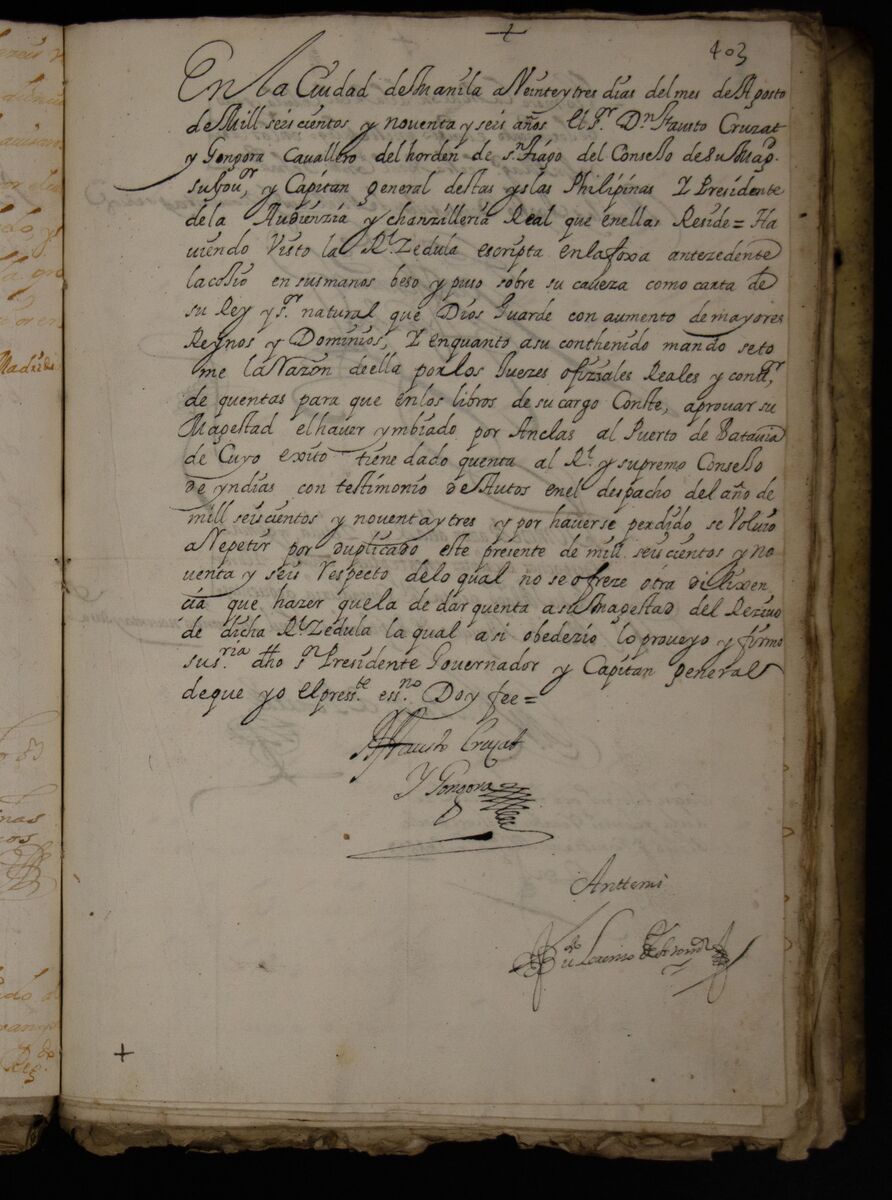 403
En la Ciudad de Manila a Veinte y tres dias del mes de Agosto
de Mill seis cientos y noventa y seis años el Sr. Dn. fausto Cruzat
y Gongora Cavallero del horden de Sn. tiago del Consejo de Su Magd.
su Gour. y Capitan general destas yslas Philipinas y Presidente
de la Audienzia y chanzilleria Real que en ellas Reside = Ha
uiendo Visto la Rl. Zedula escripta en la foxa antezedente
la cojio en sus manos beso y puso sobre su caueza como carta de
su Rey y Sr. natural que Dios Guarde con aumento de mayores
Reynos y Dominios, y en quanto a su conthenido mando se to
me la Razon de ella por los Juezes ofizales Reales y contr.
de quentas para que en los libros de su cargo Conste, aprouar su
Magestad el hauer ymbiado por Anclas al Puerto de Batauia
de Cuyo exito tiene dado quenta al Rl. y supremo Consejo
de yndias con testimonio de Autos en el despacho del año de
mill seis cientos y noventa y tres y por hauerse perdido se Voluio
a Repetir por duplicado este presente de mill seis cientos y no
uenta y seis Respecto de lo qual no se ofreze otra dilixen
cia que hazer que la de dar quenta a su Magestad del Reziuo
de dicha Rl. Zedula la qual asi obedezio lo proueyo y firmo
su s.ria dho Sr. Presidente Gouernador y Capitan general
de que yo el press.te ess.no Doy fee =
fausto Cruzat
y Gongora
Ante mi